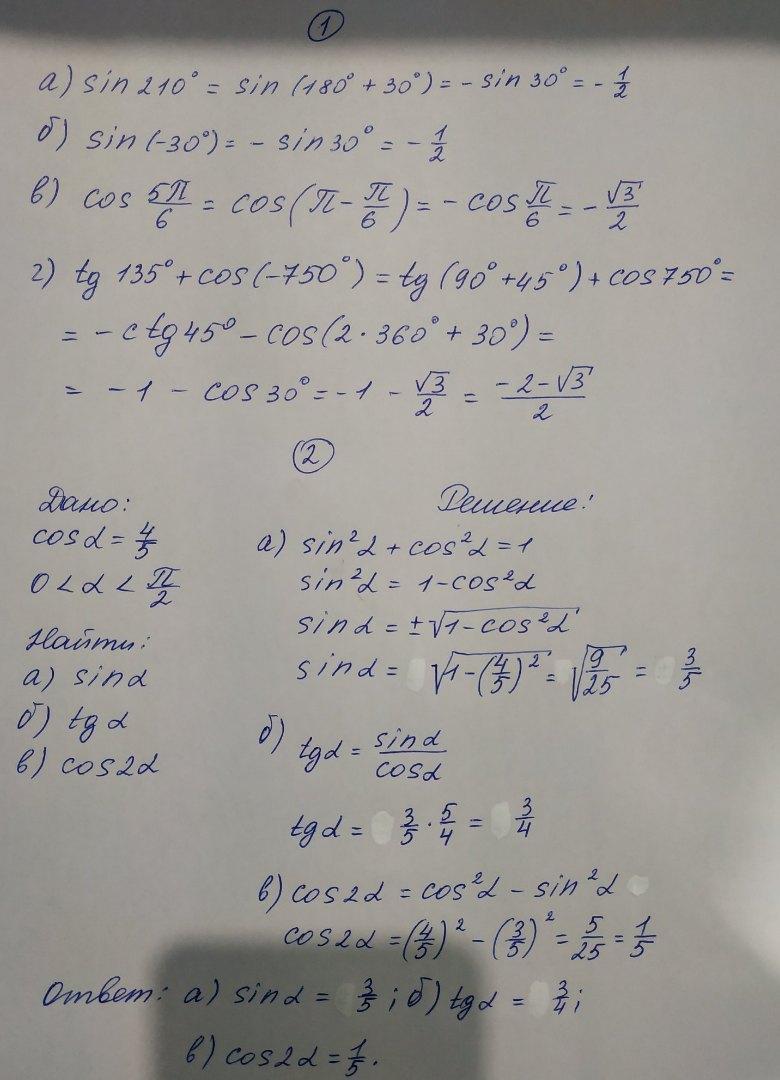 1
а) sin 210° = sin (180° + 30°) = - sin 30° = - 1/2
б) sin (-30°) = - sin 30° = - 1/2
в) cos 5π/6 = cos (π - π/6) = - cos π/6 = - √3/2
г) tg 135° + cos (-750°) = tg (90° + 45°) + cos 750° =
= - ctg 45° - cos (2 · 360° + 30°) =
= - 1 - cos 30° = - 1 - √3/2 = (-2 - √3)/2
2
Дано:
cos α = 4/5
0 < α < π/2
Найти:
а) sin α
б) tg α
в) cos 2α
Решение:
а) sin²α + cos²α = 1
sin²α = 1 - cos²α
sin α = ± √(1 - cos²α)
sin α = √(1 - (4/5)²) = √(9/25) = 3/5
б) tg α = sin α / cos α
tg α = 3/5 · 5/4 = 3/4
в) cos 2α = cos²α - sin²α
cos 2α = (4/5)² - (3/5)² = 5/25 = 1/5
Ответ: а) sin α = 3/5; б) tg α = 3/4;
в) cos 2α = 1/5.